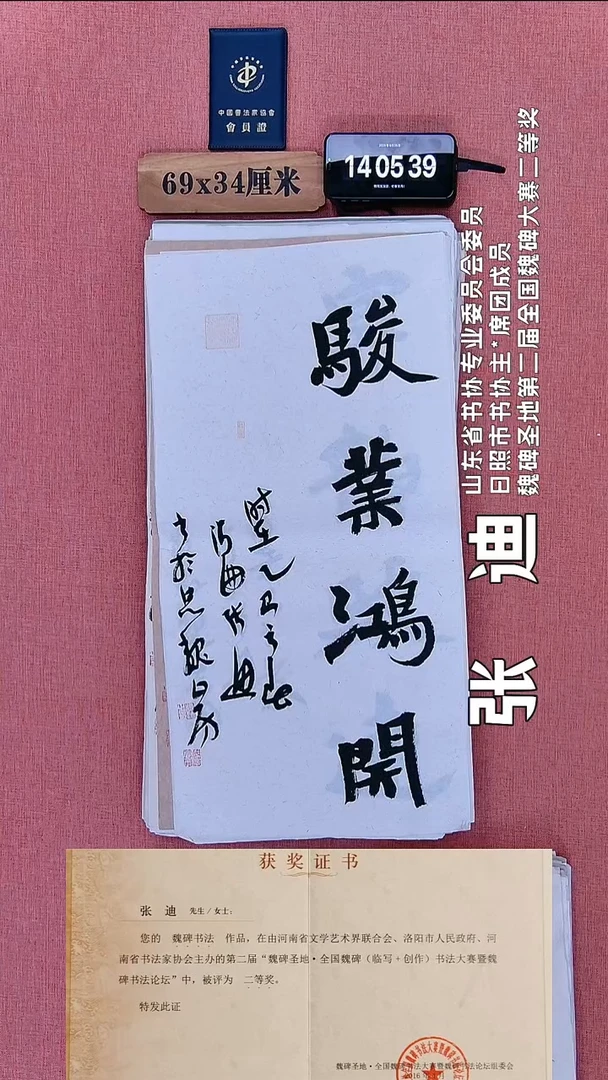 中國書法家協會
會員證
69x34厘米
14 05 39
山东省书协专业委员会委员
日照市书协主*席团成员
魏碑圣地第二届全国魏碑大赛二等奖
张 迪
駿業鴻開
时在乙巳之春
海曲张迪
书於思魏山房
获奖证书
张 迪 先生/女士：
您的 魏碑书法 作品，在由河南省文学艺术界联合会、洛阳市人民政府、河
南省书法家协会主办的第二届“魏碑圣地·全国魏碑（临写+创作）书法大赛暨魏
碑书法论坛”中，被评为 二等奖。
特发此证
魏碑圣地·全国魏碑书法大赛暨魏碑书法论坛组委会